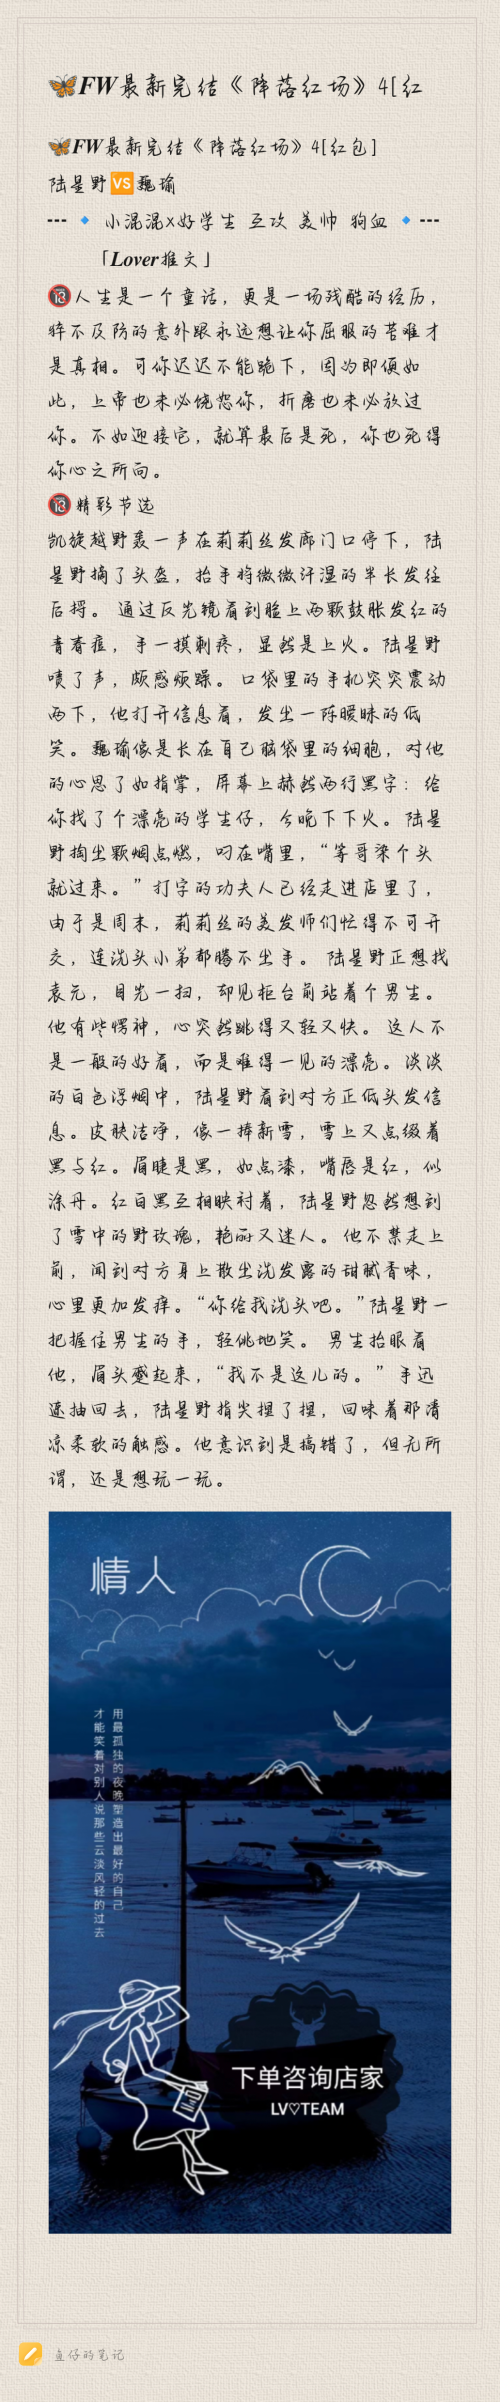 🦋FW最新完结《降落红场》4[红
🦋FW最新完结《降落红场》4[红包]
陆星野🆚魏瑜
---🔹小混混x好学生 互攻 美帅 狗血🔹---
「Lover推文」
🔞人生是一个童话，更是一场残酷的经历，
猝不及防的意外跟永远想让你屈服的苦难才
是真相。可你迟迟不能跪下，因为即便如
此，上帝也未必饶恕你，折磨也未必放过
你。不如迎接它，就算最后是死，你也死得
你心之所向。
🔞精彩节选
凯旋越野轰一声在莉莉丝发廊门口停下，陆
星野摘了头盔，抬手将微微汗湿的半长发往
后捋。 通过反光镜看到脸上两颗鼓胀发红的
青春痘，手一摸刺疼，显然是上火。陆星野
啧了声，颇感烦躁。 口袋里的手机突突震动
两下，他打开信息看，发出一阵暧昧的低
笑。魏瑜像是长在自己脑袋里的细胞，对他
的心思了如指掌，屏幕上赫然两行黑字：给
你找了个漂亮的学生仔，今晚下下火。陆星
野掏出颗烟点燃，叼在嘴里，“等哥染个头
就过来。”打字的功夫人已经走进店里了，
由于是周末，莉莉丝的美发师们忙得不可开
交，连洗头小弟都腾不出手。 陆星野正想找
袁元，目光一扫，却见柜台前站着个男生。
他有些愣神，心突然跳得又轻又快。 这人不
是一般的好看，而是难得一见的漂亮。淡淡
的白色浮烟中，陆星野看到对方正低头发信
息。皮肤洁净，像一捧新雪，雪上又点缀着
黑与红。眉睫是黑，如点漆，嘴唇是红，似
涂丹。红白黑互相映衬着，陆星野忽然想到
了雪中的野玫瑰，艳丽又迷人。 他不禁走上
前，闻到对方身上散出洗发露的甜腻香味，
心里更加发痒。“你给我洗头吧。”陆星野一
把握住男生的手，轻佻地笑。 男生抬眼看
他，眉头蹙起来，“我不是这儿的。” 手迅
速抽回去，陆星野指尖捏了捏，回味着那清
凉柔软的触感。他意识到是搞错了，但无所
谓，还是想玩一玩。
情人
用最孤独的夜晚塑造出最好的自己
才能笑着对别人说那些云淡风轻的过去
下单咨询店家
LV♡TEAM
鱼仔的笔记